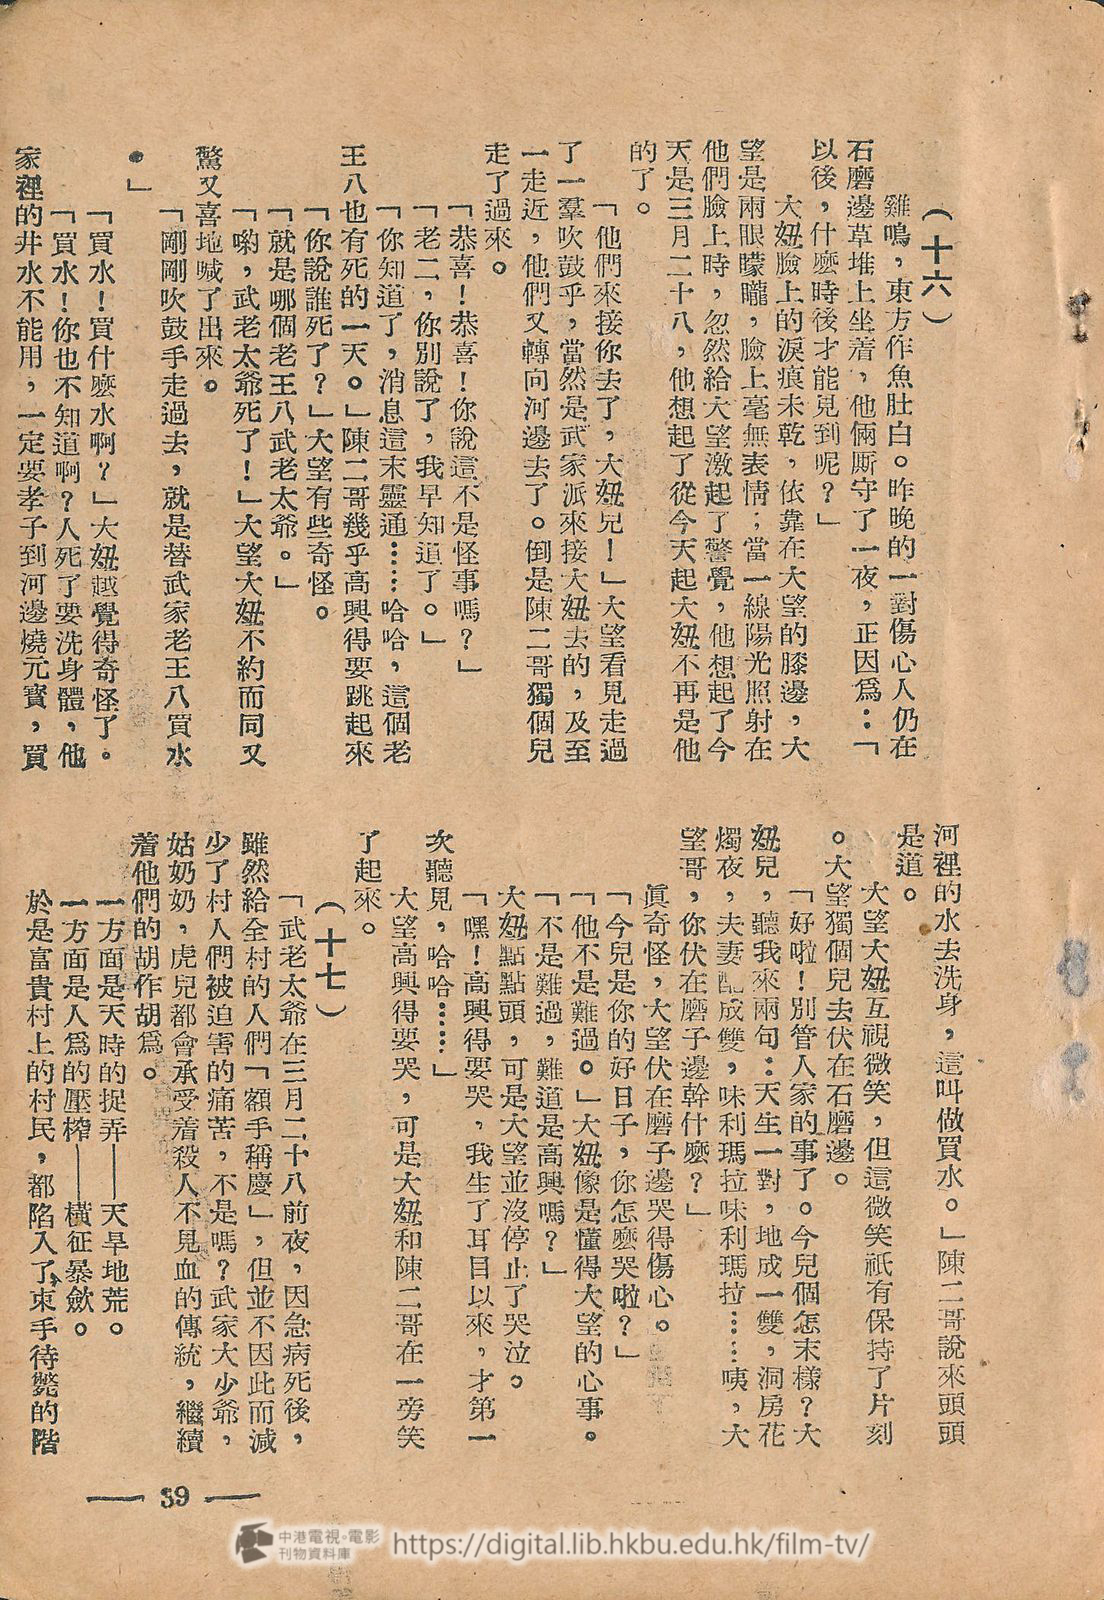 （十六）
雞鳴，東方作魚肚白。昨晚的一對傷心人仍在
石磨邊草堆上坐着，他倆厮守了一夜，正因爲：「
以後，什麼時後才能見到呢？」
大妞臉上的淚痕未乾，依靠在大望的膝邊，大
望是兩眼矇矓，臉上毫無表情；當一線陽光照射在
他們臉上時，忽然給大望激起了警覺，他想起了今
天是三月二十八，他想起了從今天起大妞不再是他
的了。
「他們來接你去了，大妞兒！」大望看見走過
了一羣吹鼓乎，當然是武家派來接大妞去的，及至
一走近，他們又轉向河邊去了。倒是陳二哥獨個兒
走了過來。
「恭喜！恭喜！你說這不是怪事嗎？」
「老二，你別說了，我早知道了。」
「你知道了，消息這末靈通……哈哈，這個老
王八也有死的一天。」陳二哥幾乎高興得要跳起來
「你說誰死了？」大望有些奇怪。
「就是哪個老王八武老太爺。」
「喲，武老太爺死了！」大望大妞不約而同又
驚又喜地喊了出來。
「剛剛吹鼓手走過去，就是替武家老王八買水
。」
「買水！買什麼水啊？」大妞越覺得奇怪了。
「買水！你也不知道啊？人死了要洗身體，他
家裡的井水不能用，一定要孝子到河邊燒元寳，買
河裡的水去洗身，這叫做買水。」陳二哥說來頭頭
是道。
大望大妞互視微笑，但這微笑祇有保持了片刻
。大望獨個兒去伏在石磨邊。
「好啦！別管人家的事了。今兒個怎末樣？大
妞兒，聽我來兩句：天生一對，地成一雙，洞房花
燭夜，夫妻配成雙，味利瑪拉味利瑪拉……咦，大
望哥，你伏在磨子邊幹什麼？」
眞奇怪，大望伏在磨子邊哭得傷心。
「今兒是你的好日子，你怎麼哭啦？」
「他不是難過。」大妞像是懂得大望的心事。
「不是難過，難道是高興嗎？」
大妞點點頭，可是大望並沒停止了哭泣。
「嘿！高興得要哭，我生了耳目以來，才第一
次聽見，哈哈……」
大望高興得要哭，可是大妞和陳二哥在一旁笑
了起來。
（十七）
「武老太爺在三月二十八前夜，因急病死後，
雖然給全村的人們「額手稱慶」，但並不因此而減
少了村人們被迫害的痛苦，不是嗎？武家大少爺，
姑奶奶，虎兒都會承受着殺人不見血的傳統，繼續
着他們的胡作胡爲。
一方面是天時的捉弄——天旱地荒。
一方面是人爲的壓榨——橫征暴歛。
於是富貴村上的村民，都陷入了束手待斃的階
— 39 —
中港電視・電影
刊物資料庫
https://digital.lib.hkbu.edu.hk/film-tv/